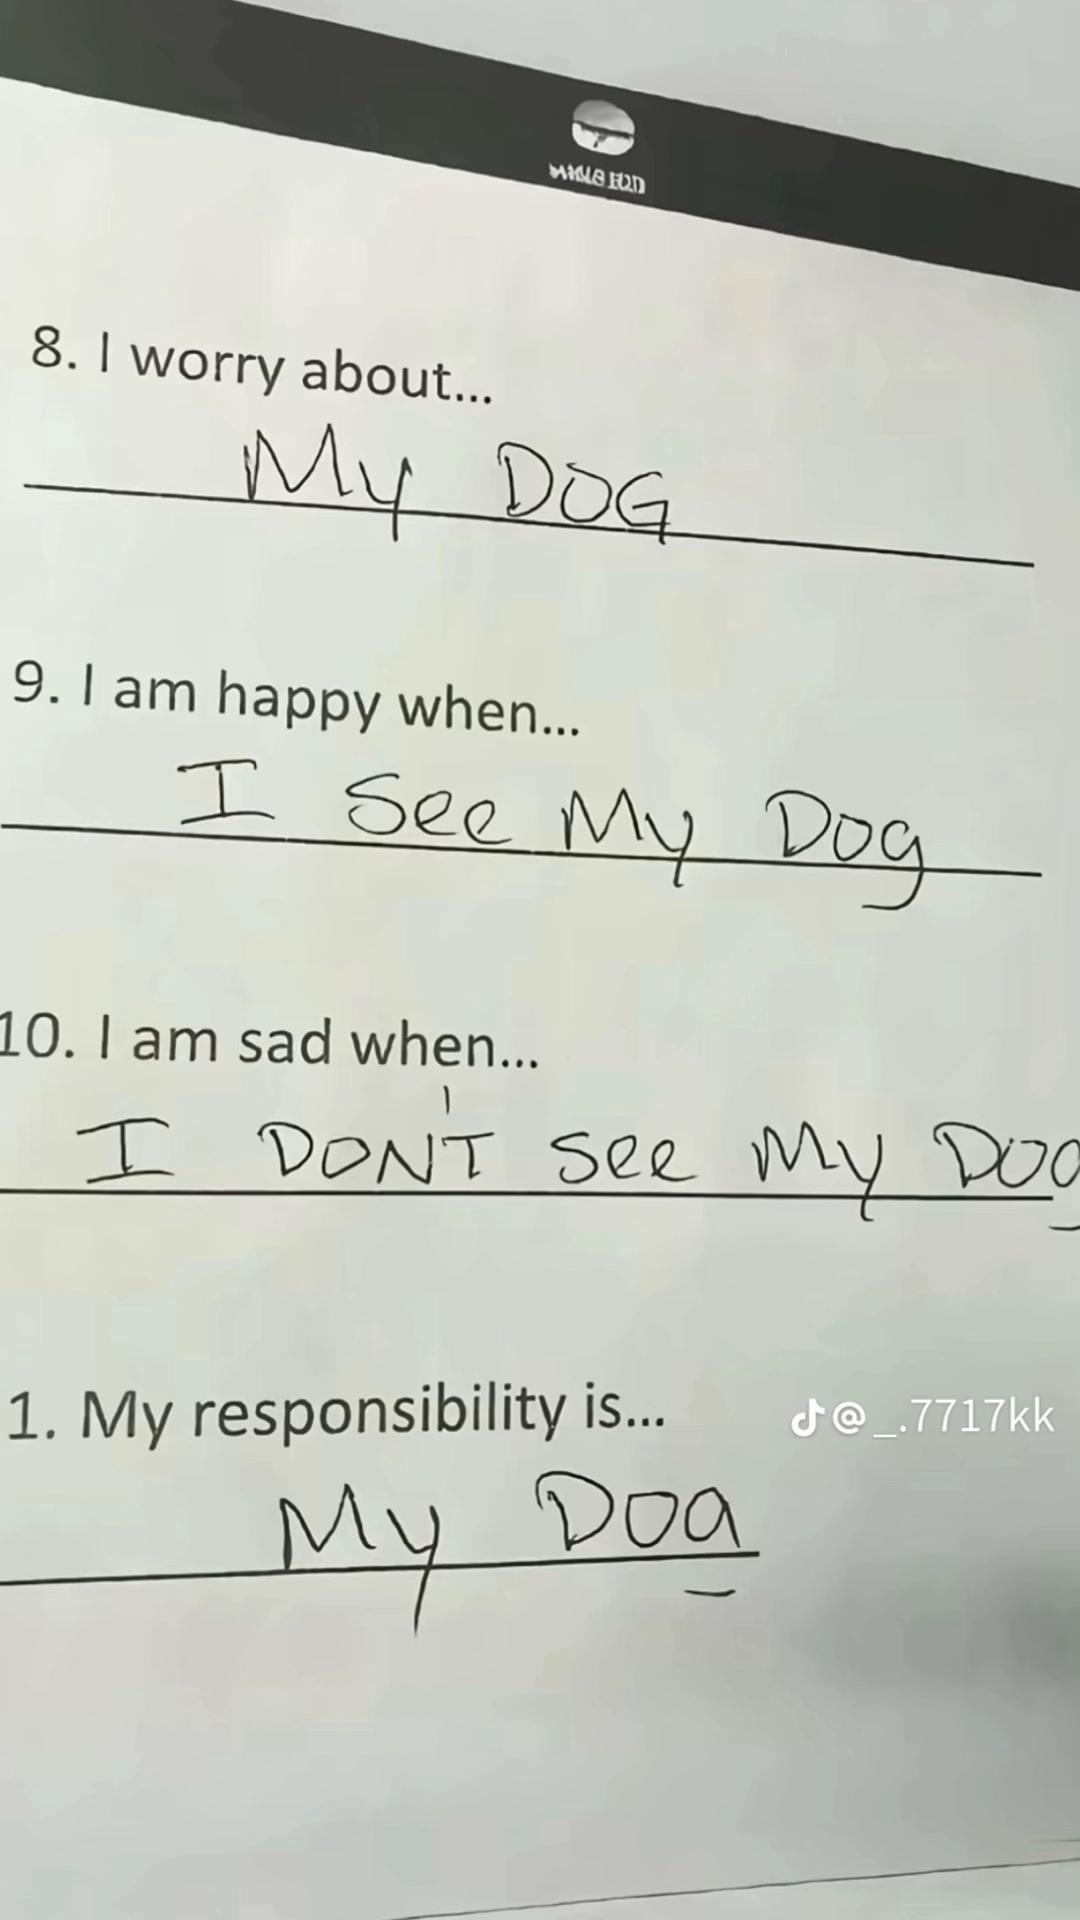 8. I worry about...
My DOG
9. I am happy when...
I See My Dog
10. I am sad when...
I DON'T See My Dog
1. My responsibility is...
@_.7717kk
My Dog